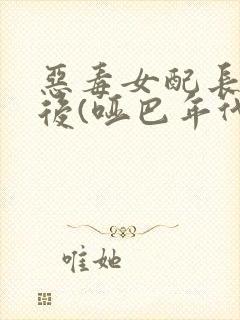 惡毒女配長
後(啞巴年代
唯她